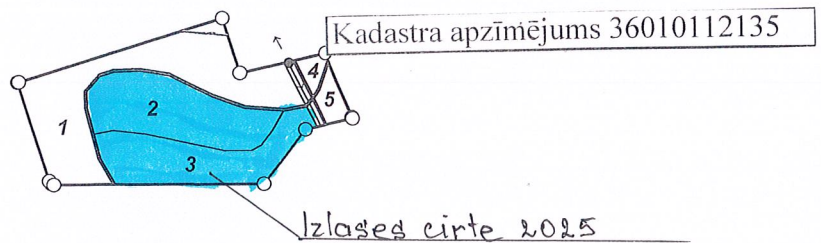 Kadastra apzīmējums 36010112135
4
5
2
1
3
Izlases cirte 2025